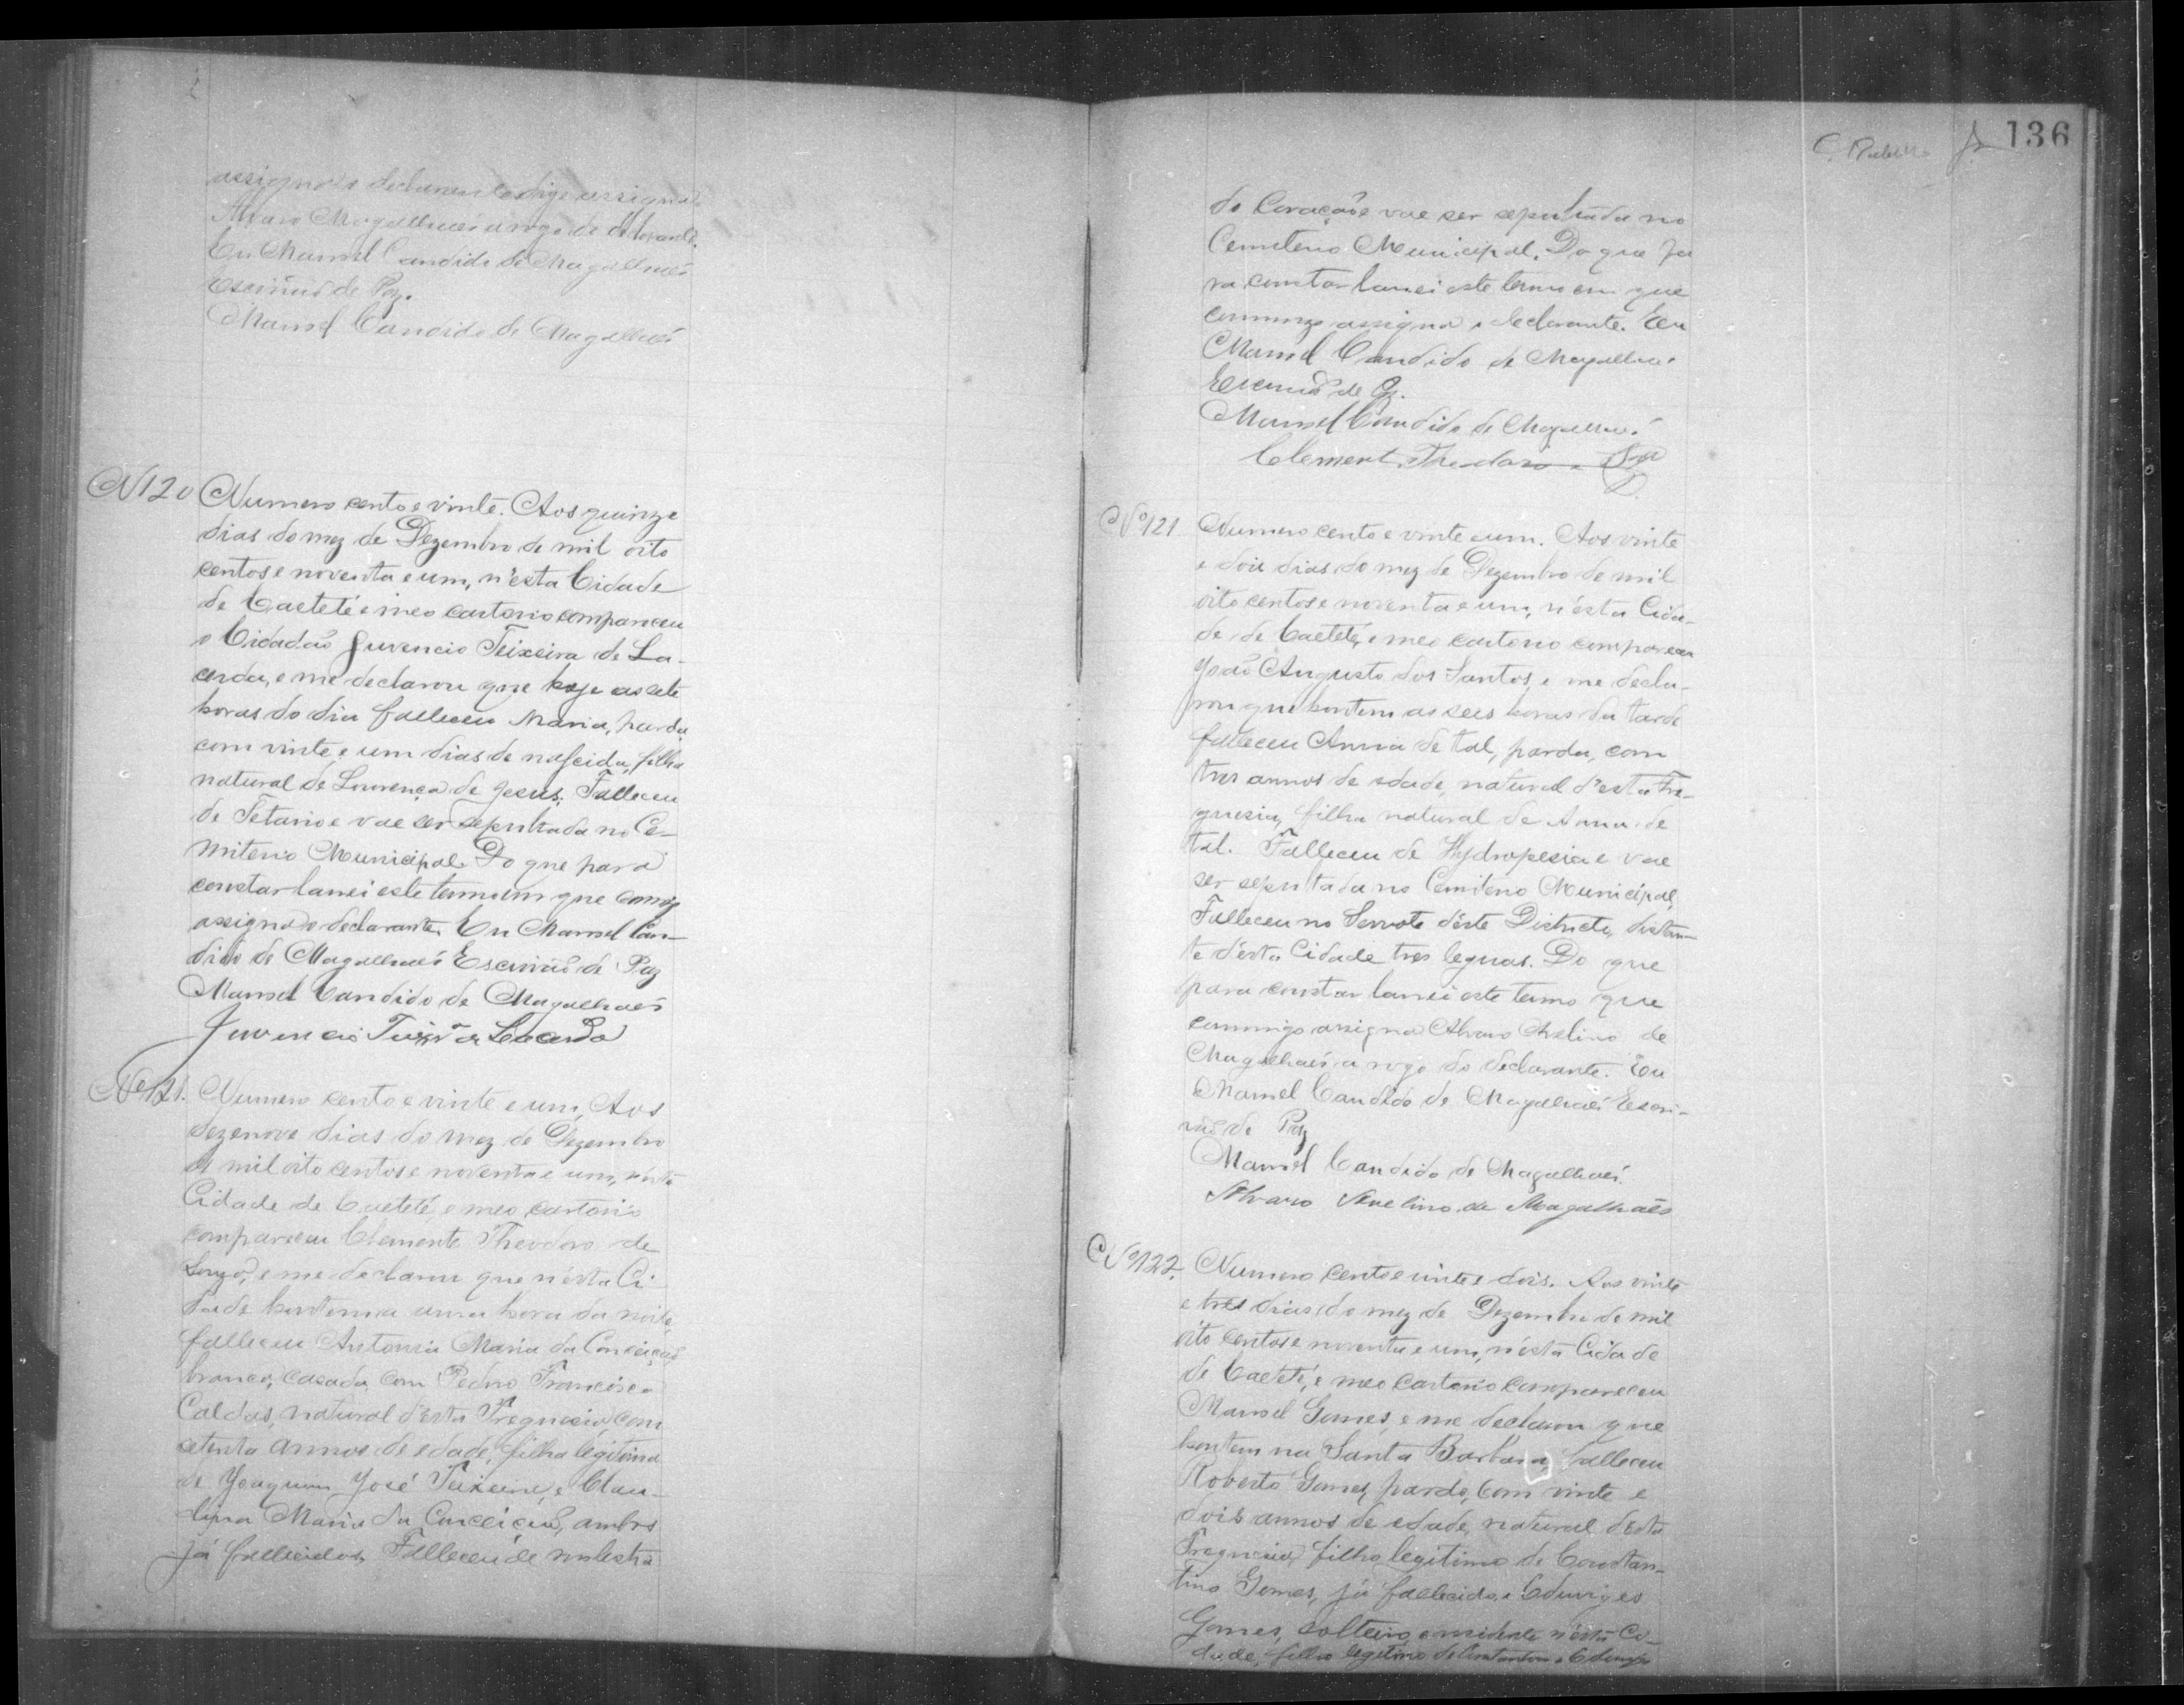 assigna o declarante digo assigna
Alvaro Magalhães a rogo do declarante.
Eu Manoel Candido de Magalhães
Escrivão de Paz.
Manoel Candido de Magalhães
N 120 Numero cento e vinte. Aos quinze
dias do mez de Dezembro de mil oito
centos e noventa e um, n'esta Cidade
de Caeteté e meo cartorio compareceu
o Cidadão Juvencio Teixeira de La-
cerda, e me declarou que hoje as sete
horas do dia falleceu Maria, parda
com vinte e um dias de nascida, filha
natural de Lourença de Jesus. Falleceu
de Tetano e vae ser sepultada no Ce-
miterio Municipal. Do que para
constar lancei este termo em que comigo
assigna o declarante. Eu Manoel Can-
dido de Magalhães Escrivão de Paz
Manoel Candido de Magalhães
Juvencio Teixra de Lacerda
Nº 121. Numero cento e vinte e um, Aos
dezenove dias do mez de Dezembro
de mil oito centos e noventa e um, n'esta
Cidade de Caeteté, e meo cartorio
compareceu Clemente Theodoro de
e me declarou que n'esta Ci-
dade hontem a uma hora da noite,
falleceu Antonia Maria da Conceição
branca, casada com Pedro Francisco
Caldas, natural d'esta Freguesia com
setenta annos de edade, filha legitima
de Joaquim José Teixeira, e Clau-
dina Maria da Conceição, ambos
já fallecidos, Falleceu de molestia
136
do Coração e vae ser sepultada no
Cemiterio Municipal. Do que pa
ra constar lancei este termo em que
commigo assigna o declarante. Eu
Manoel Candido de Magalhães
Escrivão de Paz.
Manoel Candido de Magalhães
Clemente Theodoro
Nº 121 Numero cento e vinte e um. Aos vinte
e dois dias do mez de Dezembro de mil
oito centos e noventa e um, n'esta Cida-
de de Caeteté, e meo cartorio compareceu
João Augusto dos Santos, e me decla-
rou que hontem as seis horas da tarde
falleceu Anna de tal, parda, com
tres annos de edade, natural d'esta Fre-
guesia, filha natural de Anna de
tal. Falleceu de Hydropesia e vae
ser sepultada no Cemiterio Municipal,
Falleceu no Serrote d'este Districto, distan-
te d'esta Cidade tres leguas. Do que
para constar lancei este termo que
commigo assigna Alvaro Avelino de
Magalhães a rogo do declarante. Eu
Manoel Candido de Magalhães Escri-
vão de Paz
Manoel Candido de Magalhães.
Alvaro Avelino de Magalhães
Nº 122. Numero cento e vinte e dois. Aos vinte
e tres dias do mez de Dezembro de mil
oito centos e noventa e um, n'esta Cidade
de Caeteté, e meo Cartorio compareceu
Manoel Gomes, e me declarou que
hontem na Santa Barbara, falleceu
Roberto Gomes, pardo, com vinte e
dois annos de edade, natural d'esta
Freguesia, filho legitimo de Constan-
tino Gomes, já fallecido, e Eduviges
Gomes, solteiro, e residente n'esta Ci-
dade, filho legitimo de Constantino e Eduviges